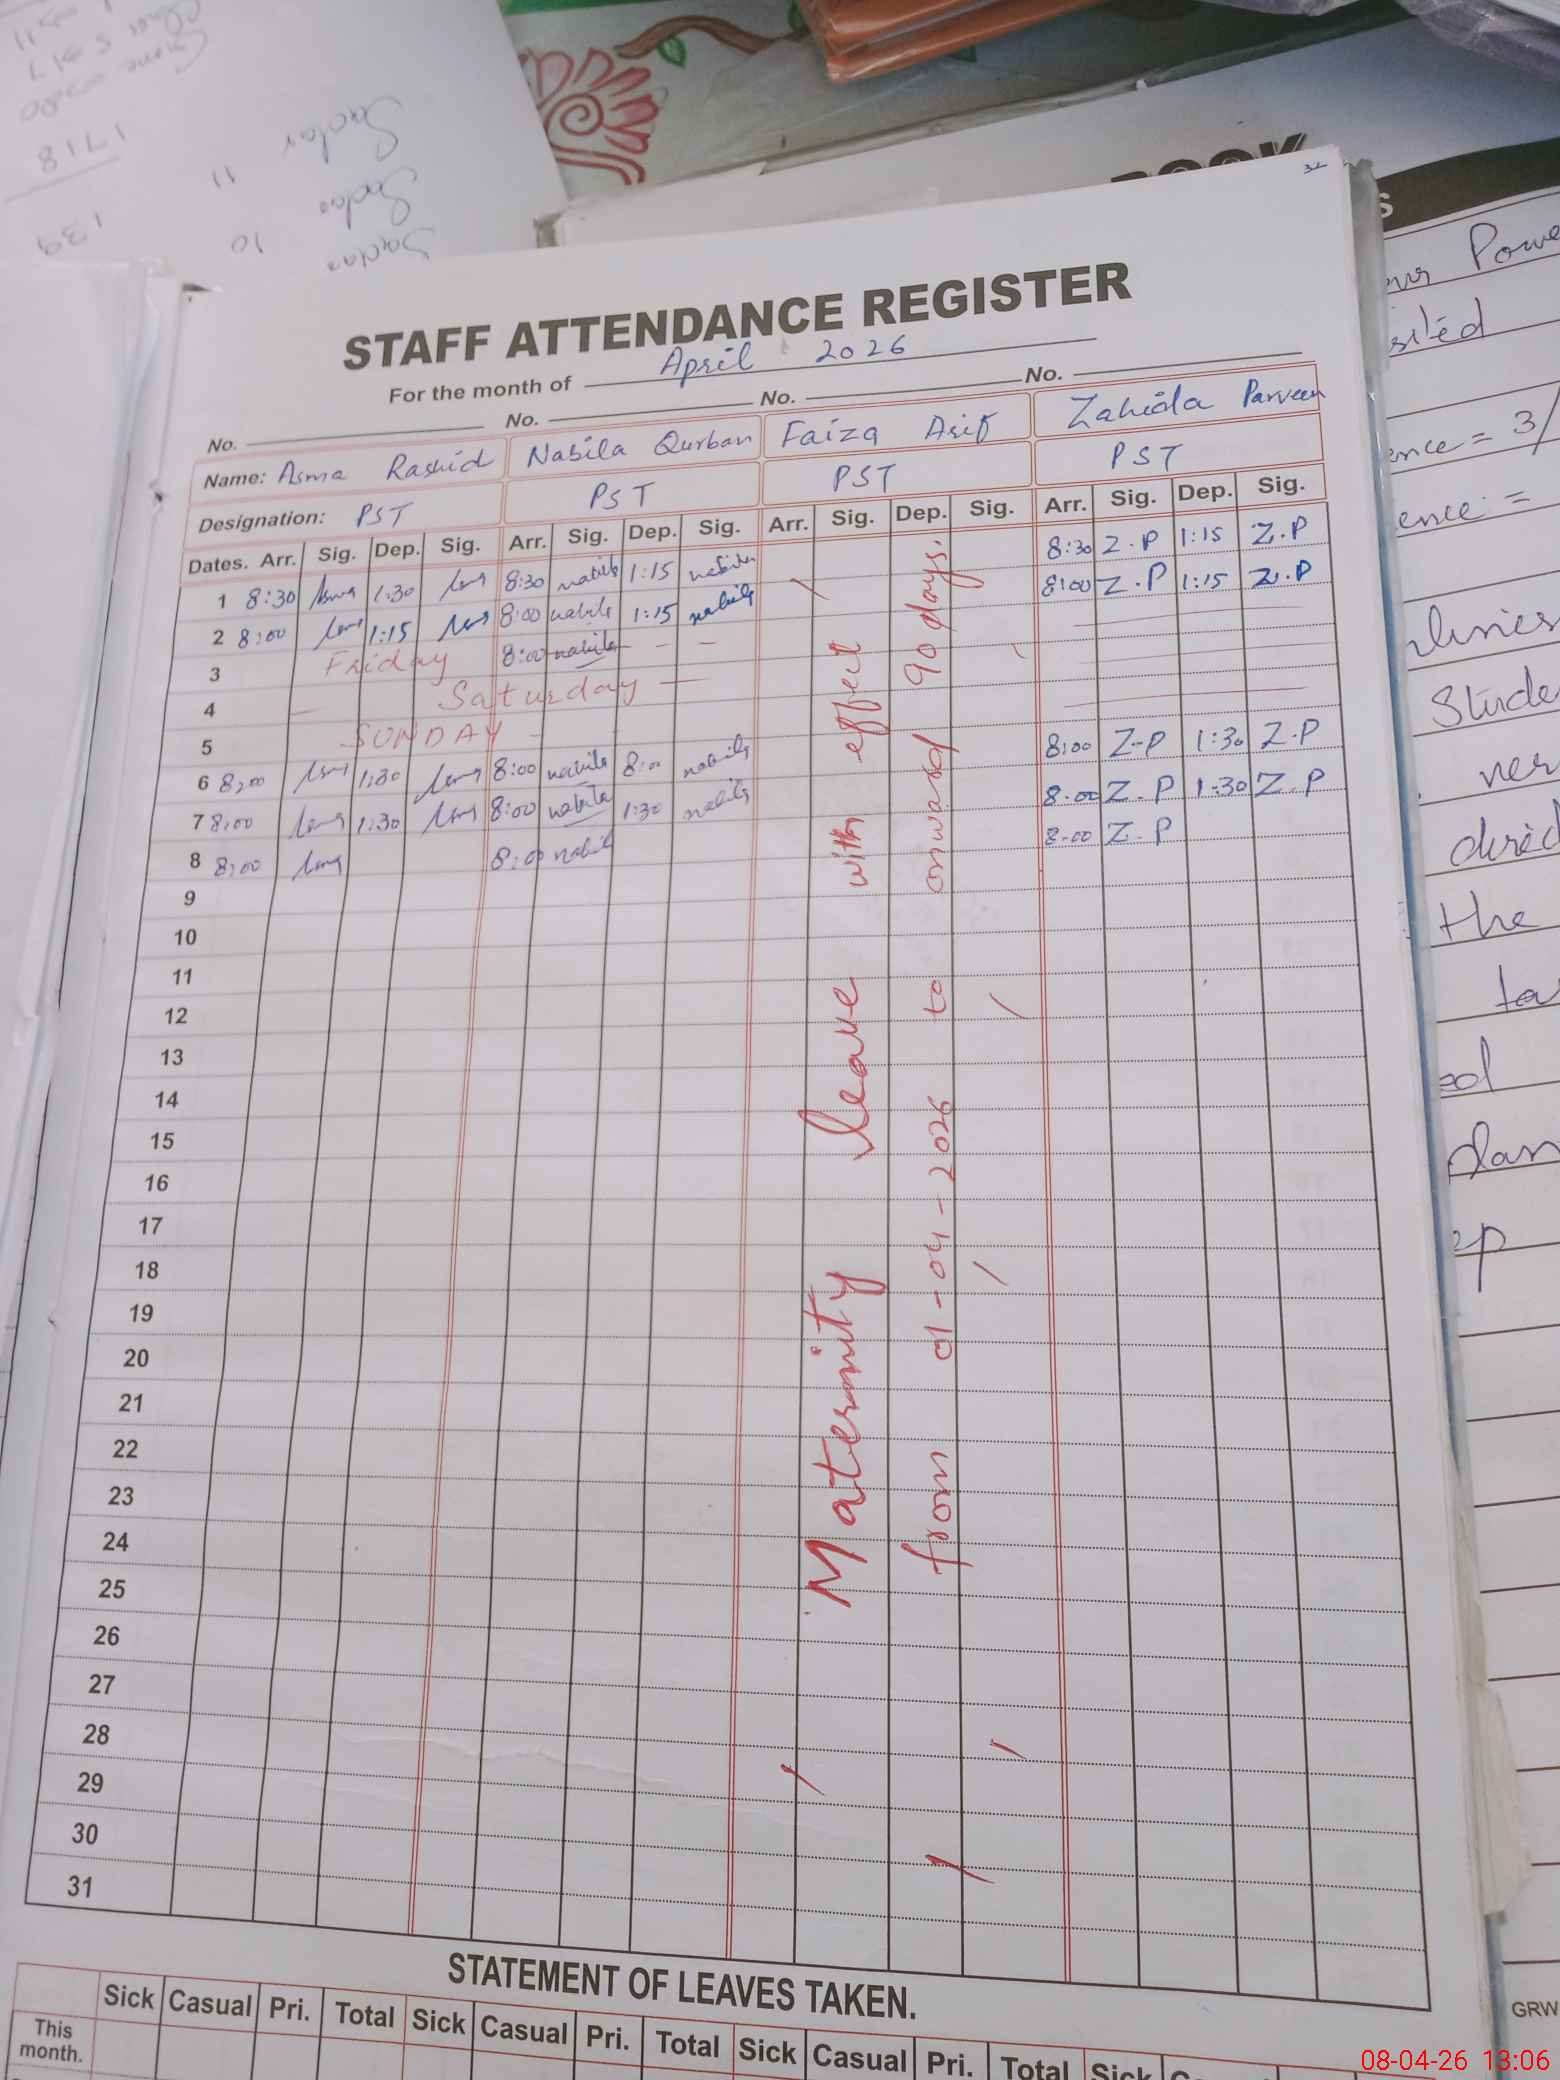 1718
139
11
10
BOOK
STAFF ATTENDANCE REGISTER
For the month of April 2026
No. No. No. No.
Name: Asma Rashid Nabila Qurban Faiza Asif Zahida Parveen
Designation: PST PST PST PST
Dates. Arr. Sig. Dep. Sig. Arr. Sig. Dep. Sig. Arr. Sig. Dep. Sig. Arr. Sig. Dep. Sig.
1 8:30 Asma 1:30 8:30 nabila 1:15 nabila 8:30 Z.P 1:15 Z.P
2 8:00 1:15 8:00 nabila 1:15 nabila 8:00 Z.P 1:15 Z.P
3 Friday 8:00 nabila
4 Saturday
5 SUNDAY
6 8:00 1:30 8:00 nabila 8:00 nabila 8:00 Z-P 1:30 Z.P
7 8:00 1:30 8:00 nabila 1:30 nabila 8.00 Z.P 1:30 Z.P
8 8:00 8:00 nabil 8.00 Z.P
9
10
11
12
13
14
15
16
17
18
19
20
21
22
23
24
25
26
27
28
29
30
31
Maternity leave with effect
from 01-04-2026 to onward 90 days.
STATEMENT OF LEAVES TAKEN.
Sick Casual Pri. Total Sick Casual Pri. Total Sick Casual Pri. Total Sick
This month.
Powe
ence = 3/
ence =
the
GRW
08-04-26 13:06